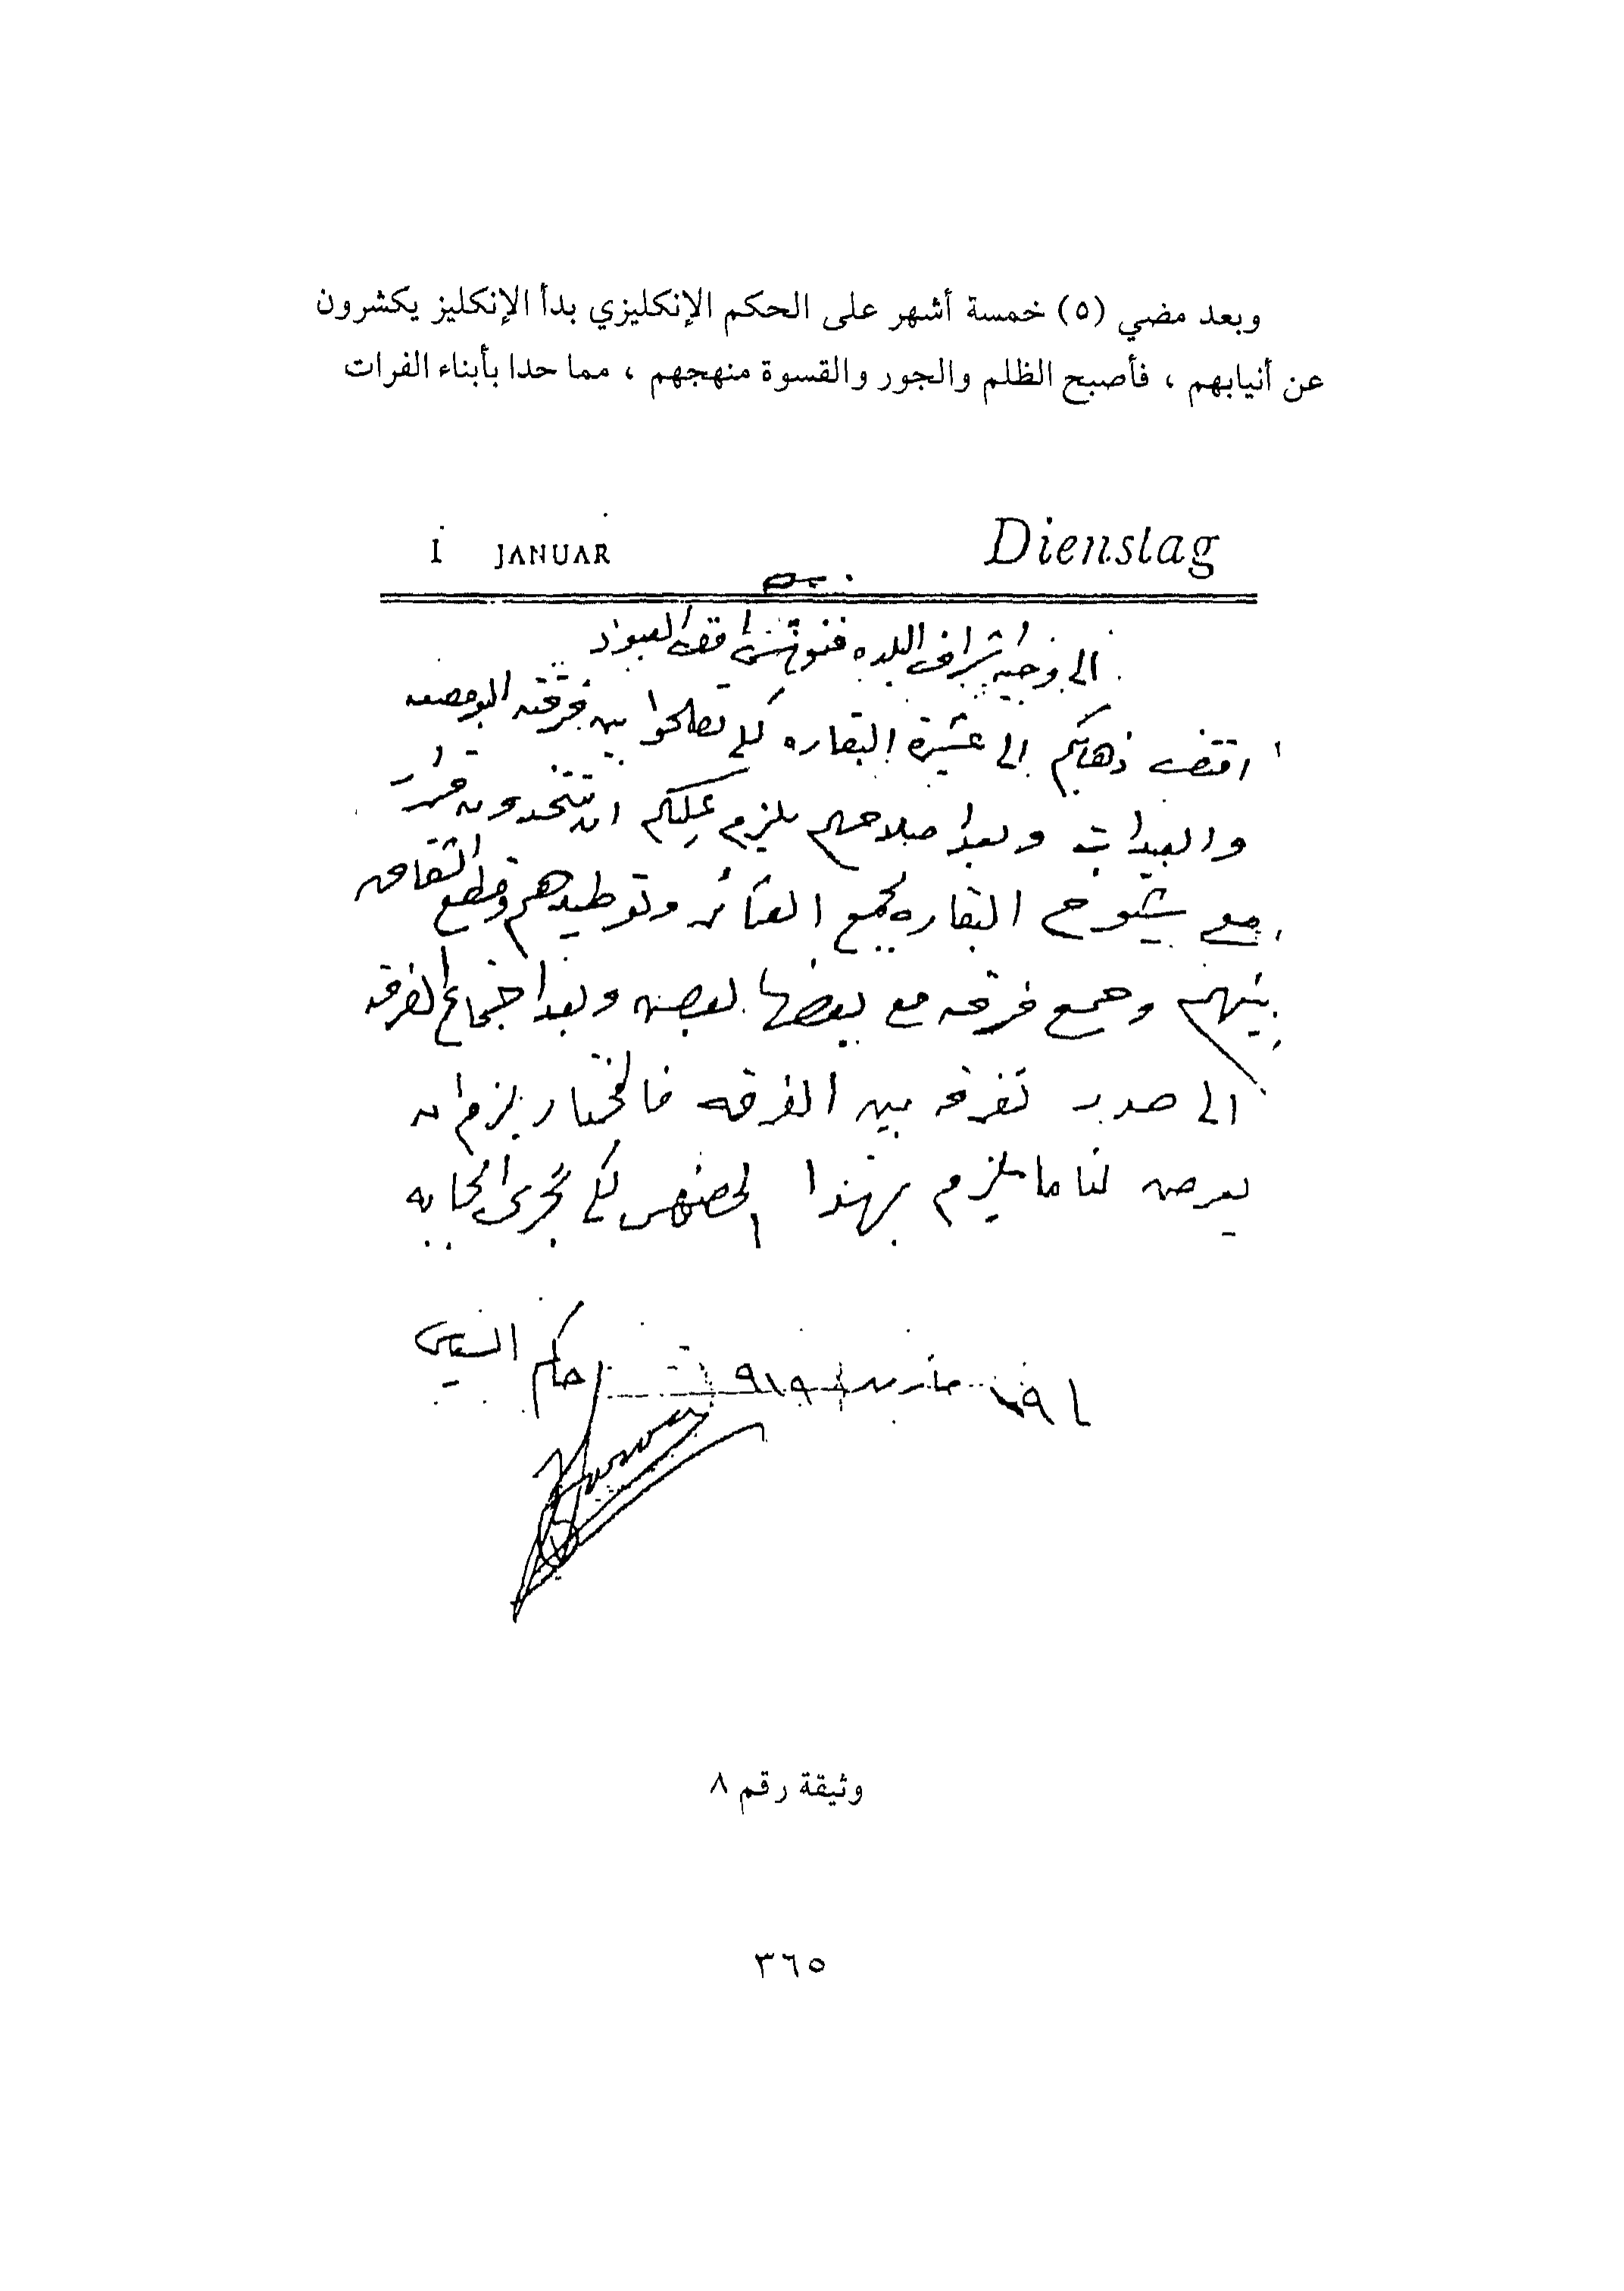 وبعد مضي (٥) خمسة أشهر على الحكم الإنكليزي بدأ الإنكليز يكشرون
عن أنيابهم ، فأصبح الظلم والجور والقسوة منهجهم ، مما حدا بأبناء الفرات
I JANUAR Dienstag
الى وجيه اشراف البلده
اقتضى ذهابكم الى عشيرة البقاره لكي تصلحوا بين فرقته
وبعد اصلاحهم يلزم عليكم ان تتخدون قرار
مع شيوخ البقاره لجمع العشائر وتوطيدهم وقطع
بينهم وجمع فرقه مع بعضها لبعض وبعد اجتماع الفرقه
الى صدر تفرقه بين الفرقه فالمختار يلزم ان
يعرض لنا ما يلزم بهذا الخصوص لكي تجري
مارس ٩١٩ حاكم السياسي
وثيقة رقم ٨
٣٦٥